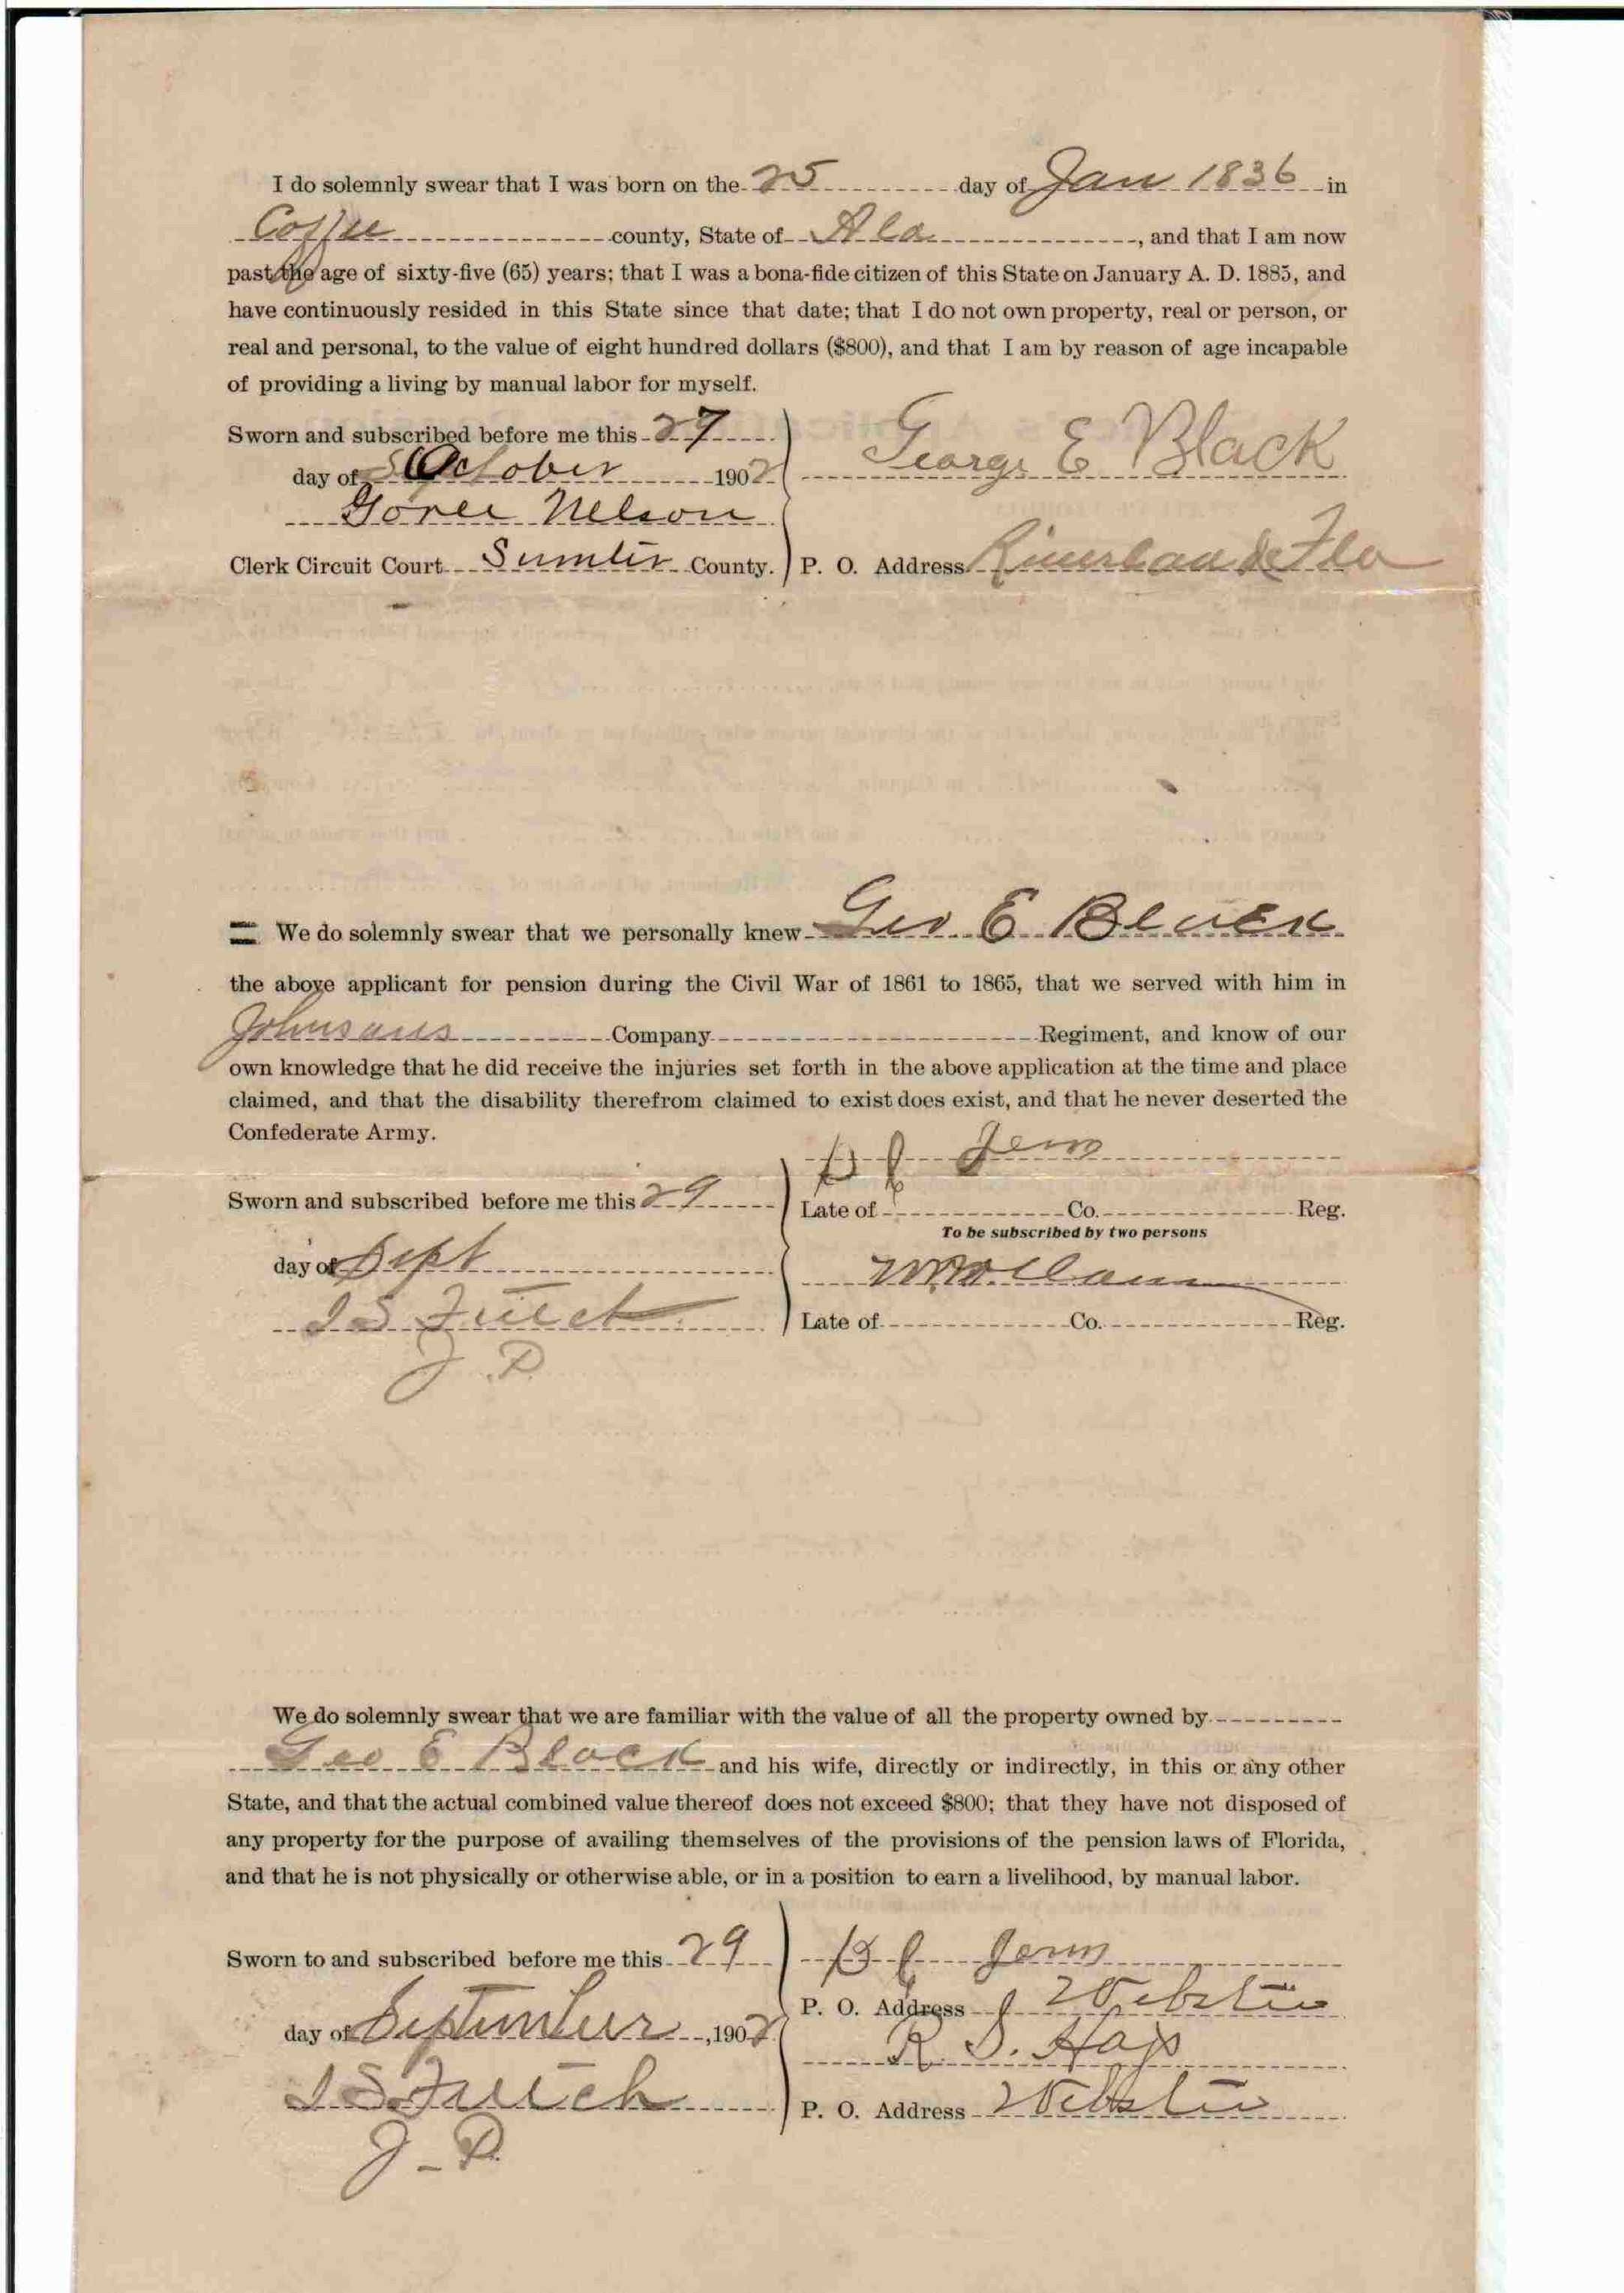 I do solemnly swear that I was born on the 25 day of Jan 1836 in
Coffee county, State of Ala, and that I am now
past the age of sixty-five (65) years; that I was a bona-fide citizen of this State on January A. D. 1885, and
have continuously resided in this State since that date; that I do not own property, real or person, or
real and personal, to the value of eight hundred dollars ($800), and that I am by reason of age incapable
of providing a living by manual labor for myself.
Sworn and subscribed before me this 27
day of October 1902
George E Black
Nelson
Clerk Circuit Court Sumter County.
P. O. Address Fla
We do solemnly swear that we personally knew Geo E Black
the above applicant for pension during the Civil War of 1861 to 1865, that we served with him in
Johnsons Company Regiment, and know of our
own knowledge that he did receive the injuries set forth in the above application at the time and place
claimed, and that the disability therefrom claimed to exist does exist, and that he never deserted the
Confederate Army.
Sworn and subscribed before me this 29
Late of Co. Reg.
To be subscribed by two persons
day of Sept
Late of Co. Reg.
J. P.
We do solemnly swear that we are familiar with the value of all the property owned by
Geo E Black and his wife, directly or indirectly, in this or any other
State, and that the actual combined value thereof does not exceed $800; that they have not disposed of
any property for the purpose of availing themselves of the provisions of the pension laws of Florida,
and that he is not physically or otherwise able, or in a position to earn a livelihood, by manual labor.
Sworn to and subscribed before me this 29
P. O. Address Webster
day of September, 1902
R. S. Hays
P. O. Address Webster
J - P.